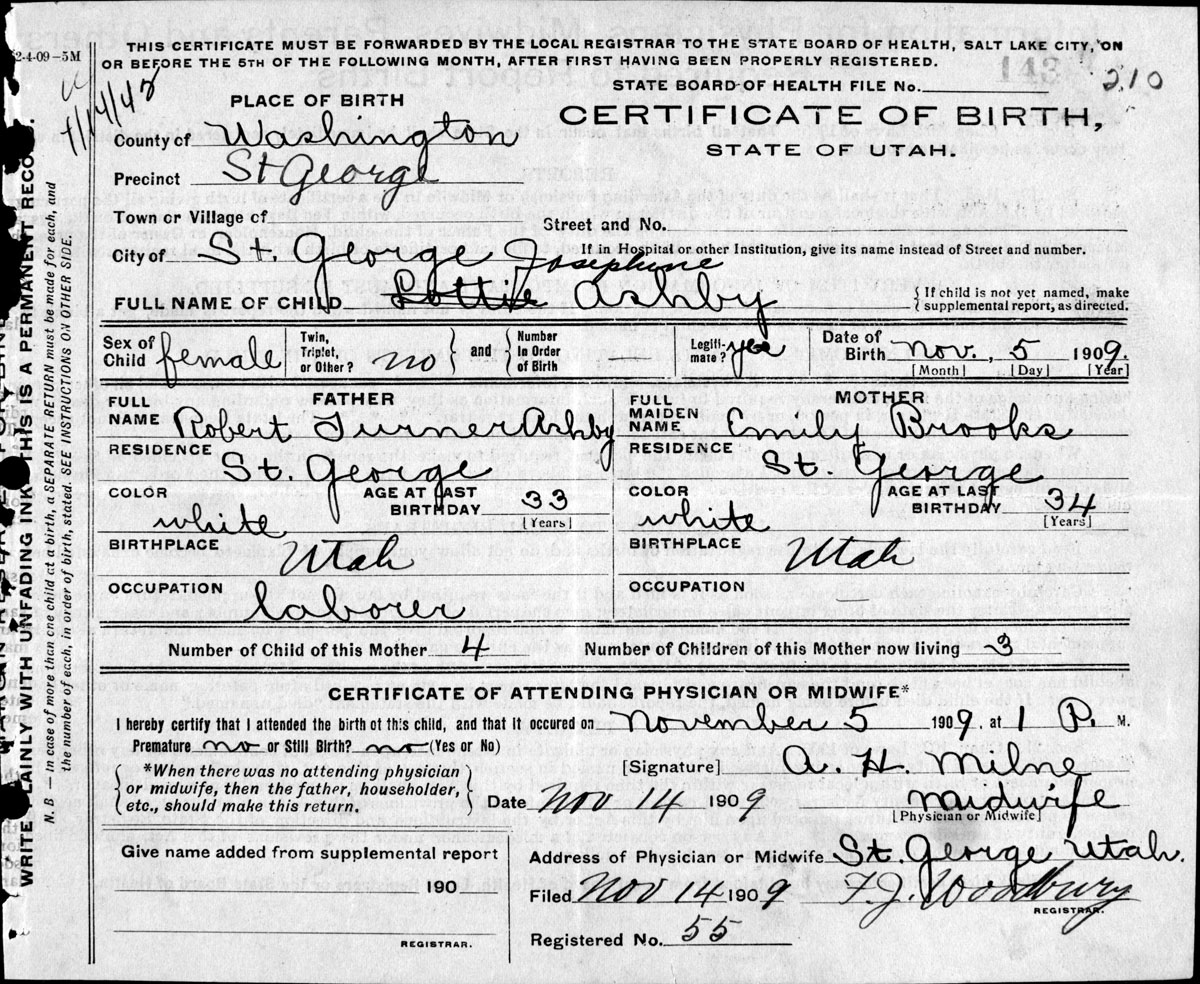 2-4-09-5M
THIS CERTIFICATE MUST BE FORWARDED BY THE LOCAL REGISTRAR TO THE STATE BOARD OF HEALTH, SALT LAKE CITY, ON
OR BEFORE THE 5TH OF THE FOLLOWING MONTH, AFTER FIRST HAVING BEEN PROPERLY REGISTERED.
143
210
STATE BOARD OF HEALTH FILE No.
PLACE OF BIRTH
CERTIFICATE OF BIRTH,
STATE OF UTAH.
County of Washington
Precinct St George
Town or Village of
Street and No.
City of St. George
If in Hospital or other Institution, give its name instead of Street and number.
Josephine
FULL NAME OF CHILD Lottie Ashby
{ If child is not yet named, make
supplemental report, as directed.
Sex of Child female
Twin, Triplet, or Other? no } and { Number In Order of Birth
Legitimate? yes
Date of Birth Nov. , 5 1909.
[Month] [Day] [Year]
FATHER
FULL NAME Robert Turner Ashby
RESIDENCE St. George
COLOR white
AGE AT LAST BIRTHDAY 33
[Years]
BIRTHPLACE Utah
OCCUPATION laborer
MOTHER
FULL MAIDEN NAME Emily Brooks
RESIDENCE St. George
COLOR white
AGE AT LAST BIRTHDAY 34
[Years]
BIRTHPLACE Utah
OCCUPATION
Number of Child of this Mother 4
Number of Children of this Mother now living 3
CERTIFICATE OF ATTENDING PHYSICIAN OR MIDWIFE*
I hereby certify that I attended the birth of this child, and that it occured on November 5 1909, at 1 P. M.
Premature no or Still Birth? no (Yes or No)
{ *When there was no attending physician
or midwife, then the father, householder,
etc., should make this return. }
[Signature] A. H. Milne
Date Nov 14 1909
Midwife
[Physician or Midwife]
Give name added from supplemental report
190
REGISTRAR.
Address of Physician or Midwife St. George Utah.
Filed Nov 14 1909 F. J. Woodbury
REGISTRAR.
Registered No. 55
WRITE PLAINLY WITH UNFADING INK THIS IS A PERMANENT RECORD.
N. B — In case of more than one child at a birth, a SEPARATE RETURN must be made for each, and
the number of each, in order of birth, stated. SEE INSTRUCTIONS ON OTHER SIDE.